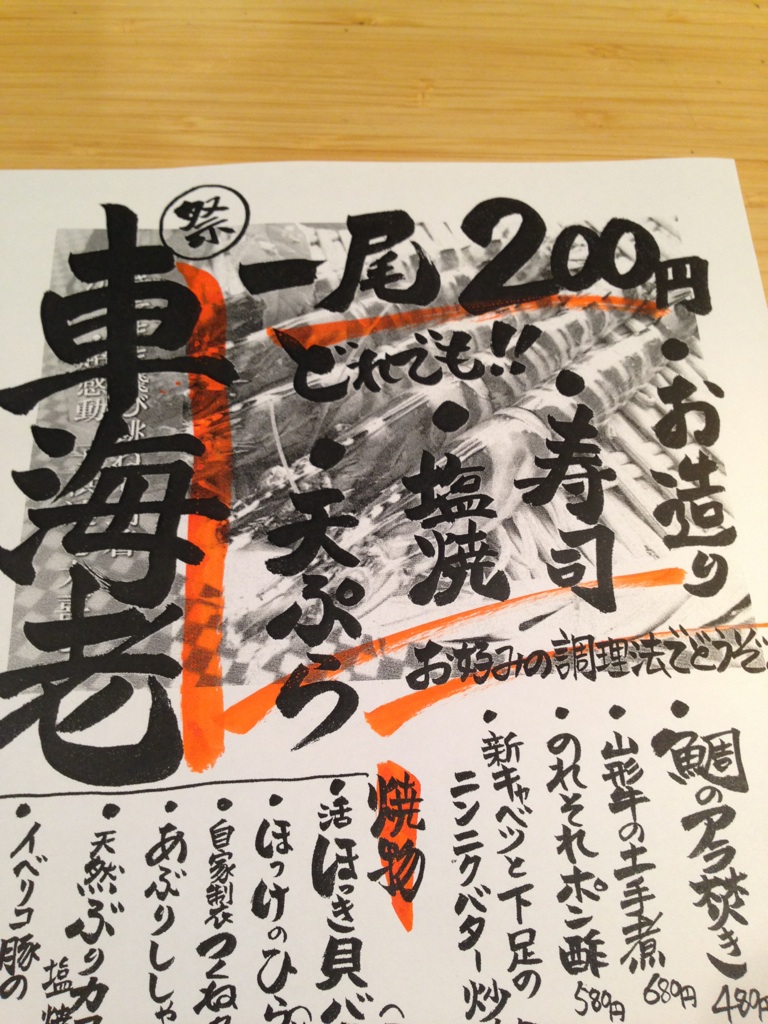 祭
車海老
一尾 200円
どれでも!!
・お造り
・寿司
・塩焼
・天ぷら
お好みの調理法でどうぞ
・鯛のアラ焚き 480円
・山形牛の土手煮 680円
・のれそれポン酢 580円
・新キャベツと下足の
ニンニクバター炒
焼物
・活ほっき貝バ
・ほっけのひら
・自家製つくね
・あぶりししゃ
・天然ぶりカマ
塩焼
・イベリコ豚の